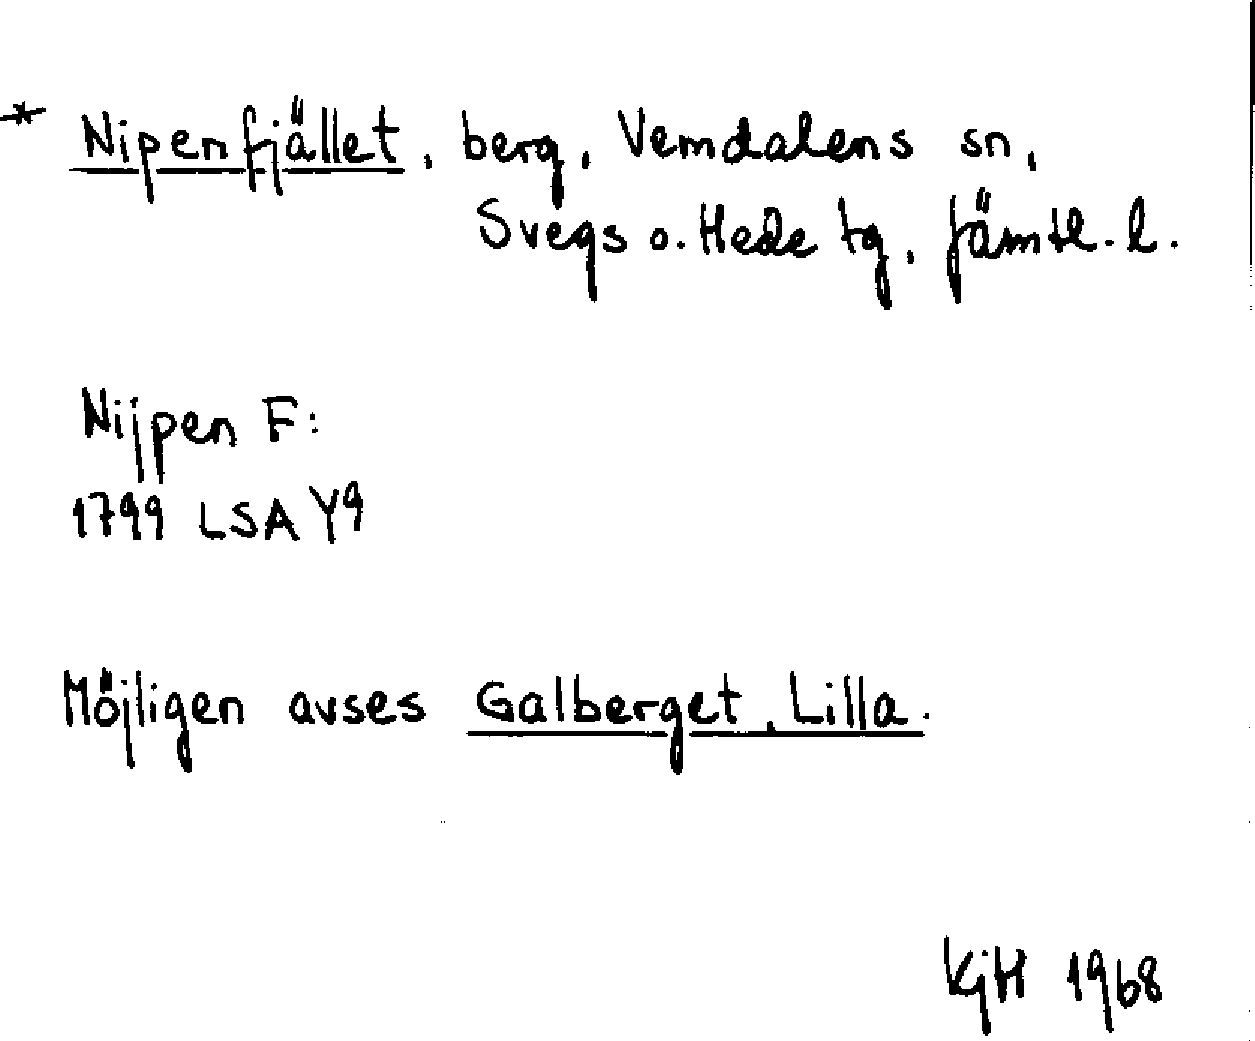 * Nipenfjället, berg, Vemdalens sn,
Svegs o. Hede tg, Jämtl. l.
Nijpen F:
1799 LSA Y9
Möjligen avses Galberget, Lilla.
KjH 1968